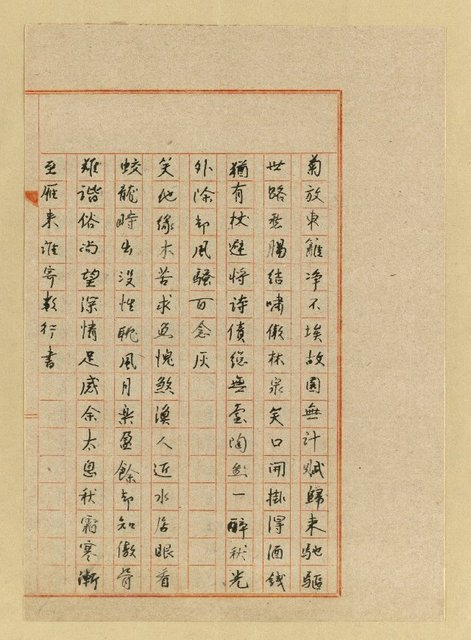 菊放東籬净不埃故園無計賦歸来馳驅
世路愁腸結嘯傲林泉笑口開掛得酒錢
猶有杖避将詩債總無臺陶然一醉秋光
外除却風騷百念灰
笑他緣木苦求魚愧煞漁人近水居眼看
蛟龍時出没性耽風月樂盈餘却知傲骨
難諧俗尚望深情足感余太息秋霜寒漸
至雁来誰寄数行書